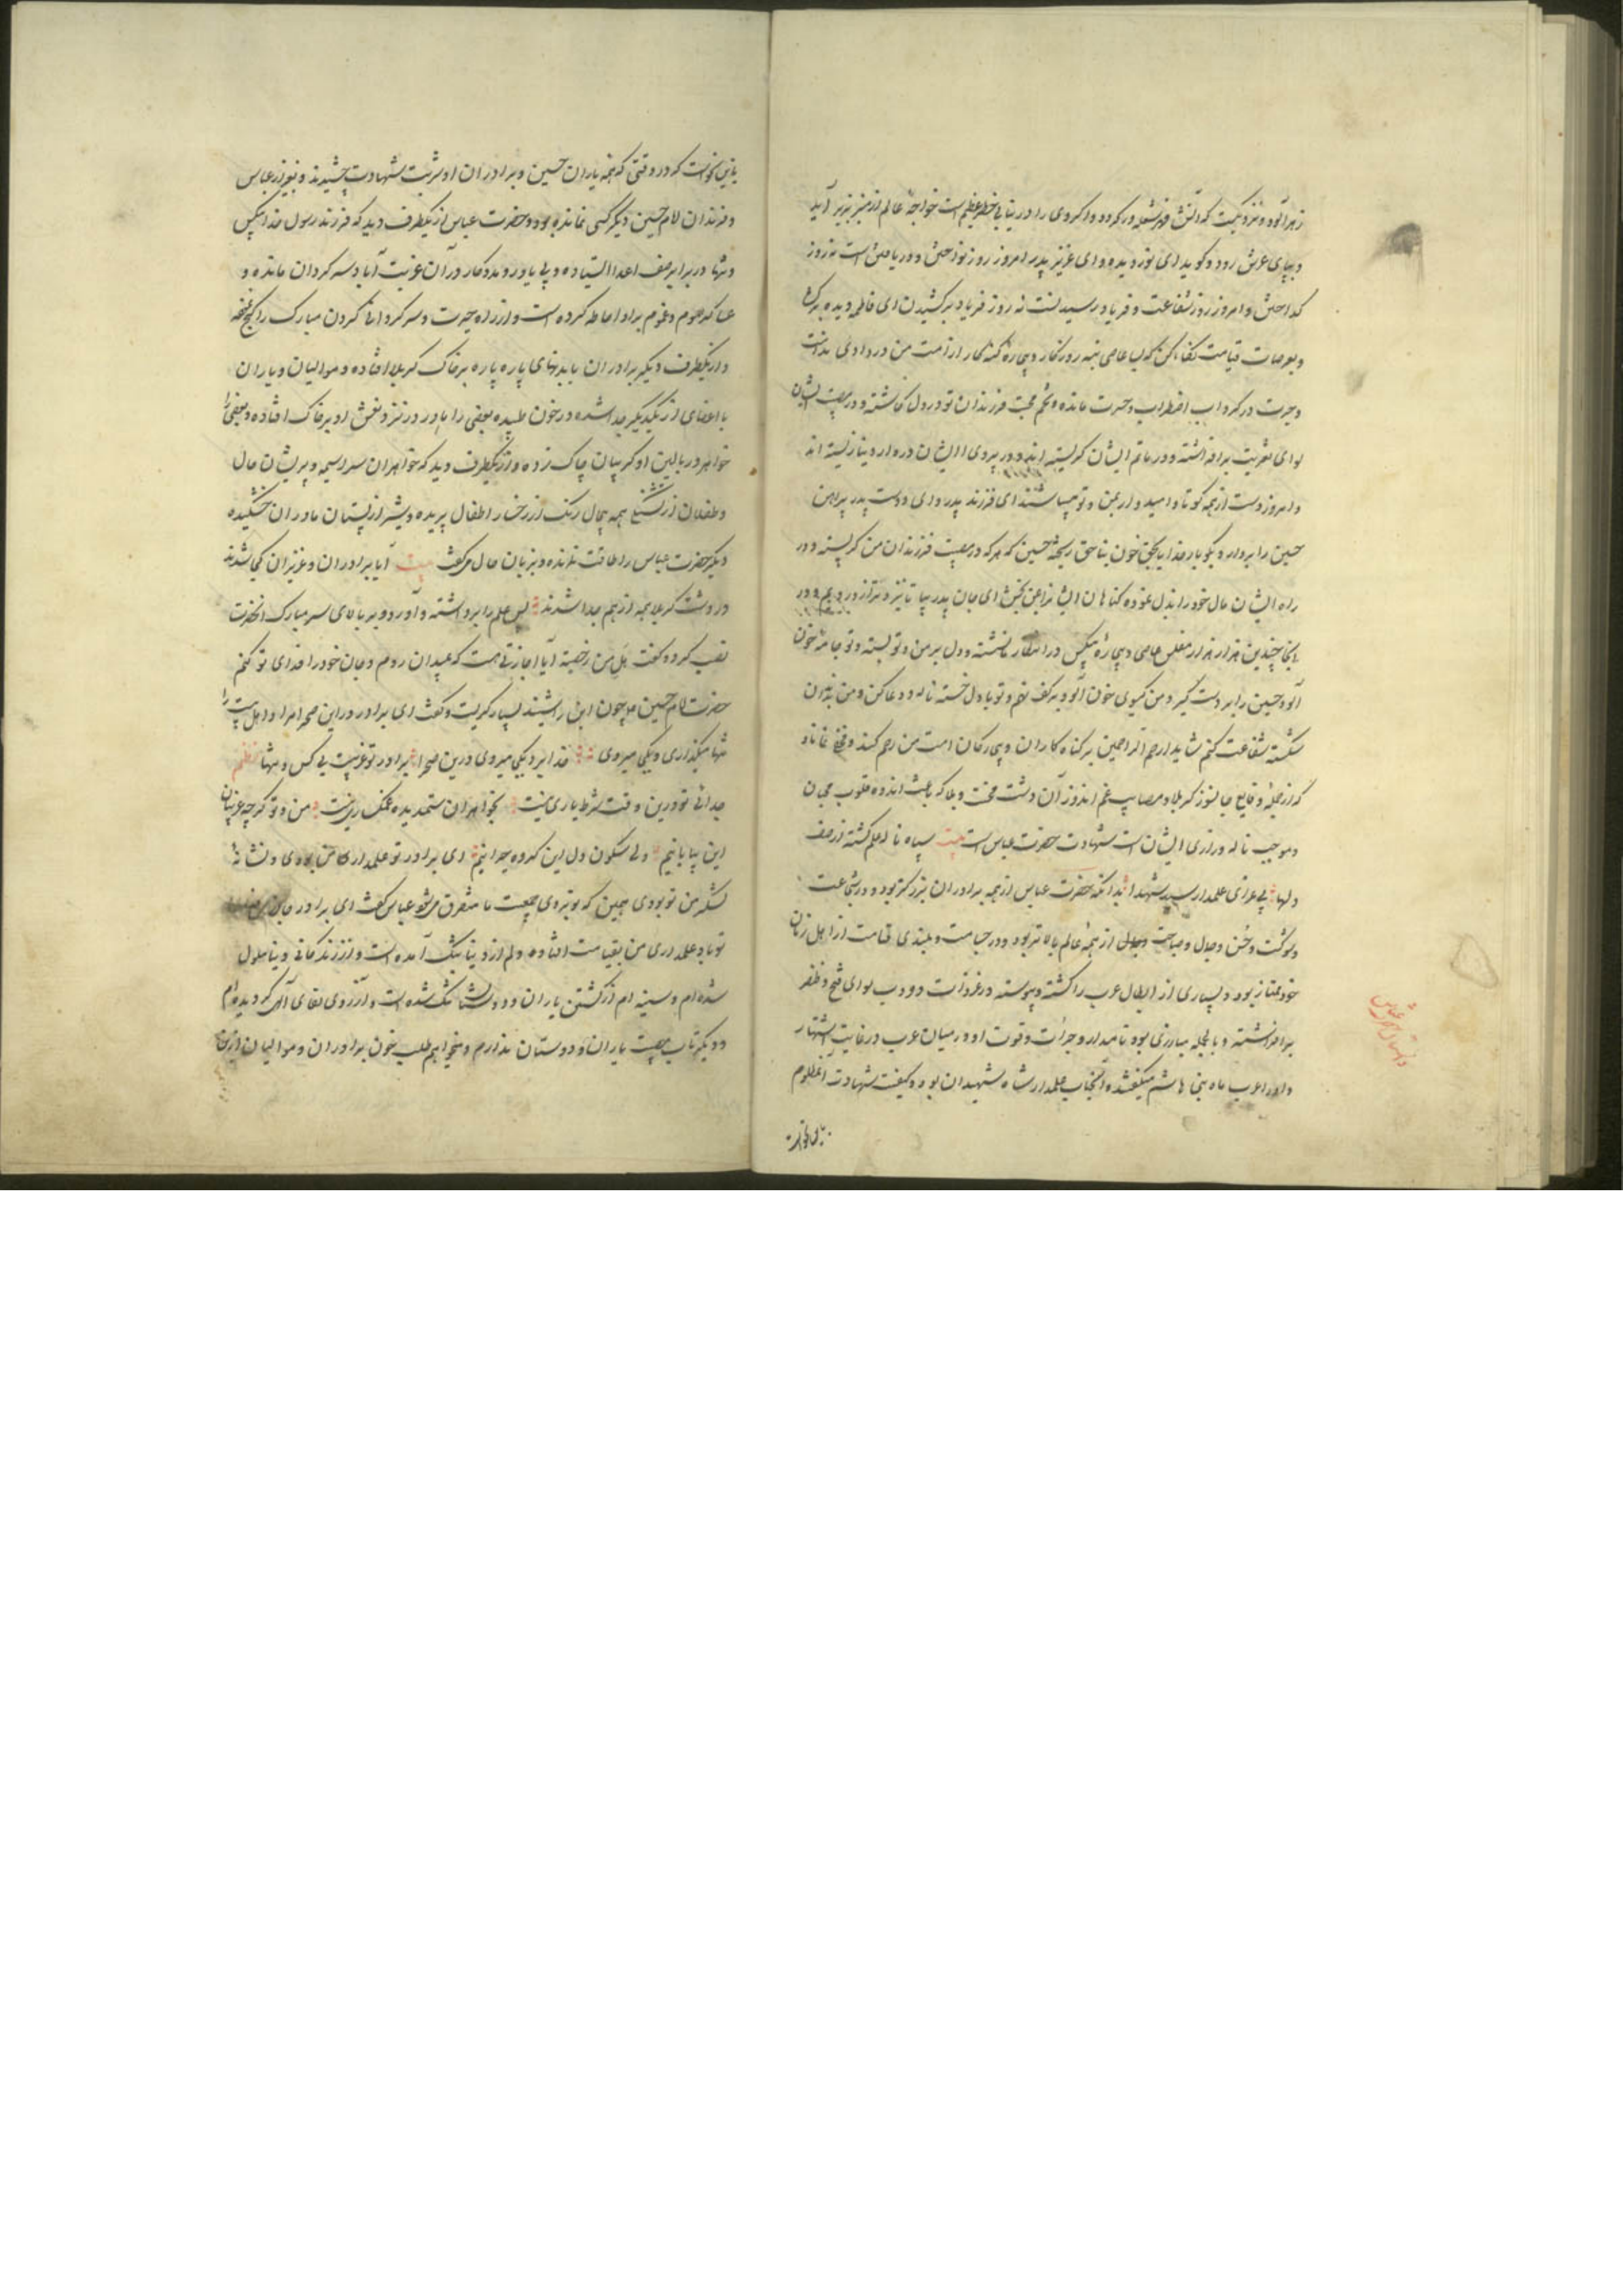 زهرآلود و نزدیکست که آتش قهر شعله ور گردد و اگر وی را دریابی خطر عظیم است خواجهٔ عالم از منبر بزیر آید
و بپای عرش رود و گوید ای نور دیده و ای عزیز پدر امروز روز نوازش و دریافتن است نه روز
گداختن و امروز روز شفاعت و فریاد رسیدنست نه روز فریاد برکشیدن ای فاطمه دیده برگشا
و بعرصات قیامت نگاه کن که بسیار عاصی تبه روزگار و بیچاره گنهکار از امت من در وادی ندامت
و حیرت در گرداب اضطراب و حسرت مانده و تخم محبت فرزندان تو در دل کاشته و در مصیبت ایشان
لوای تعزیت برافراشته و در ماتم ایشان گریسته اند و در پیروی ایشان در دار دنیا زیسته اند
و امروز دست از همه کوتاه و امیدوار بمن و تو میباشند ای فرزند پدر و ای دوست پدر پیراهن
حسین را بردار و بگو بار خدایا بحق خون بناحق ریخته حسین که هر که در مصیبت فرزندان من گریسته و در
راه ایشان مال خود را بذل نموده گناهان ایشانرا بمن بخش ای جان پدر بیا تا نیز و ترازو رویم و در
اینجا چندین هزار هزار مفلس عاصی و بیچاره بیکس در انتظار نشسته و دل بر من و تو بسته و تو جامه خون
آلود حسین را بر دست گیر و من گیسوی خون آلود بر کف نهم و تو با دل خسته ناله و دعا کن و من
شکسته شفاعت کنم شاید ارحم الراحمین بر گناه کاران و بیچارگان امت من رحم کند و مخفی نماناد
که از جملهٔ وقایع جانسوز کربلا و مصایب غم اندوز آن دشت محنت و بلا که باعث اندوه قلوب محبان
و موجب ناله و زاری ایشان است شهادت حضرت عباس است بیت سپاه ناله علم گشته از صف
دلها پی عزای علمدار سید شهدا بدانکه حضرت عباس از همه برادران بزرگتر بود و در شجاعت
و شوکت و حسن و جمال و صباحت و جلال از همهٔ عالم بالاتر بود و در جسامت و بلندی قامت از اهل زمان
خود ممتاز بود و بسیاری از ابطال عرب را کشته و پیوسته در غزوات و حروب لوای فتح و ظفر
برافراشته و بالجمله مبارزی بود نامدار و جرأت و قوت او در میان عرب در غایت اشتهار
و او را عرب ماه بنی هاشم میگفتند و آنجناب علمدار شاه شهیدان بود و کیفیت شهادت آنمظلوم
باین نحو است
باین نحو است که در وقتی که همه یاران حسین و برادران او شربت شهادت چشیدند و بغیر از عباس
و فرزندان امام حسین دیگر کسی نمانده بود و حضرت عباس از یکطرف دید که فرزند رسول خدا بیکس
و تنها در برابر صف اعدا ایستاده و بی یاور و مددکار در آن غربت آباد سرگردان مانده و
عساکر هموم و غموم بر او احاطه کرده است و از راه حیرت و سرگردانی گردن مبارک را کج نموده
و از یکطرف دیگر برادران با بدنهای پاره پاره بر خاک کربلا افتاده و موالیان و یاران
با اعضای از یکدیگر جدا شده در خون طپیده بعضی را مادر در نزد نعش او بر خاک افتاده و بعضی را
خواهر در بالین او گریبان چاک زده و از یکطرف دید که خواهران سراسیمه و پریشان حال
و طفلان از تشنگی همه بیحال رنگ از رخسار اطفال پریده و شیر از پستان مادران خشکیده
دیگر حضرت عباس را طاقت نمانده و بزبان حال میگفت بیت آیا برادران و عزیزان کجا شدند
در دشت کربلا همه از هم جدا شدند پس علم را برداشته و آورد و بر بالای سر مبارک آنحضرت
نصب کرد و گفت هل من رخصة آیا اجازتی هست که بمیدان روم و جان خود را فدای تو کنم
حضرت امام حسین ع چون این را شنید بسیار گریست و گفت ای برادر در این صحرا مرا و اهل بیت را
تنها میگذاری و بکجا میروی فدا یرد بکجا میروی درین صحرا برادر تو غریبست بی کس و تنها نظم
جدائی تو درین وقت شرط یاری نیست بخواهران ستمدیده غمگساری نیست من و تو گرچه غریبان
این بیابانیم ولی سکون دل این گروه حیرانیم ای برادر تو علمدار من بودی و نشانهٔ
لشکر من تو بودی همین که تو بروی جمعیت ما متفرق میشود عباس گفت ای برادر جان من فدای
تو باد علمداری من بقیامت افتاده دلم از دنیا بتنگ آمده است و از زندگانی دنیا ملول
شده ام و سینه ام از کشتن یاران و دوستان تنگ شده است و آرزوی لقای آلهی گردیده ام
و دیگر تاب مصیبت یاران و دوستان ندارم و میخواهم طلب خون برادران و موالیان از